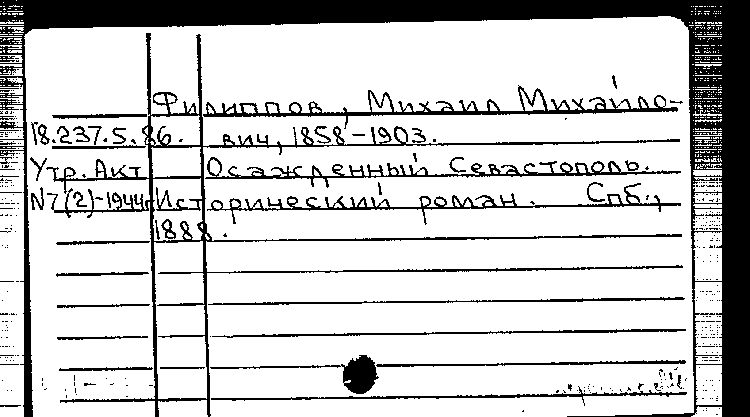 Филиппов, Михаил Михайло-
18.237.5.86. вич, 1858-1903.
Утр. Акт Осажденный Севастополь.
N7(2)-1944г Исторический роман. Спб.,
1888.